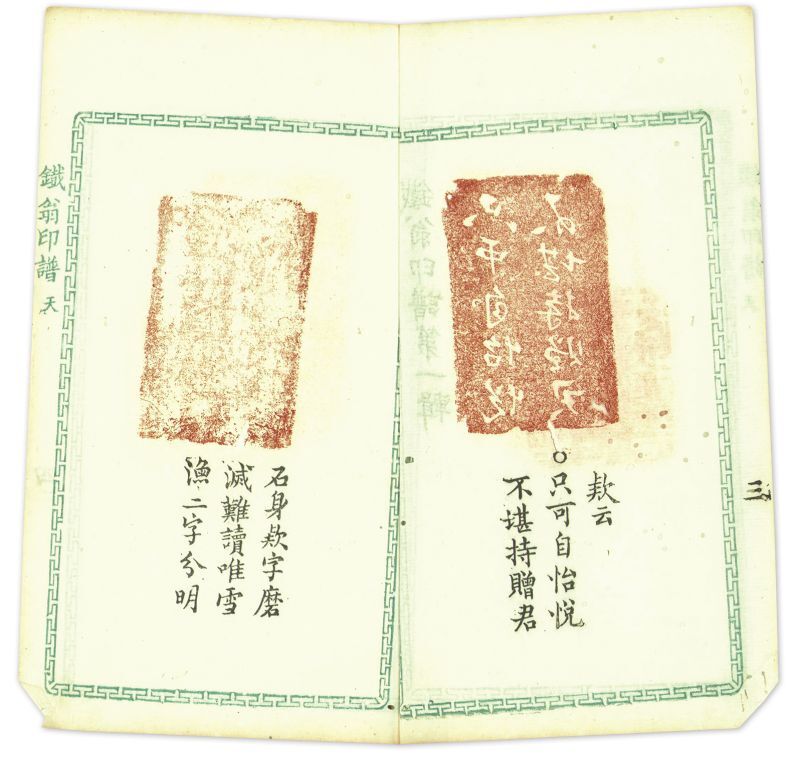 三
只可自怡悅
不堪持贈君
欵云
○只可自怡悅
不堪持贈君
石身欵字磨
滅難讀唯雪
漁二字分明
鐵翁印譜 天